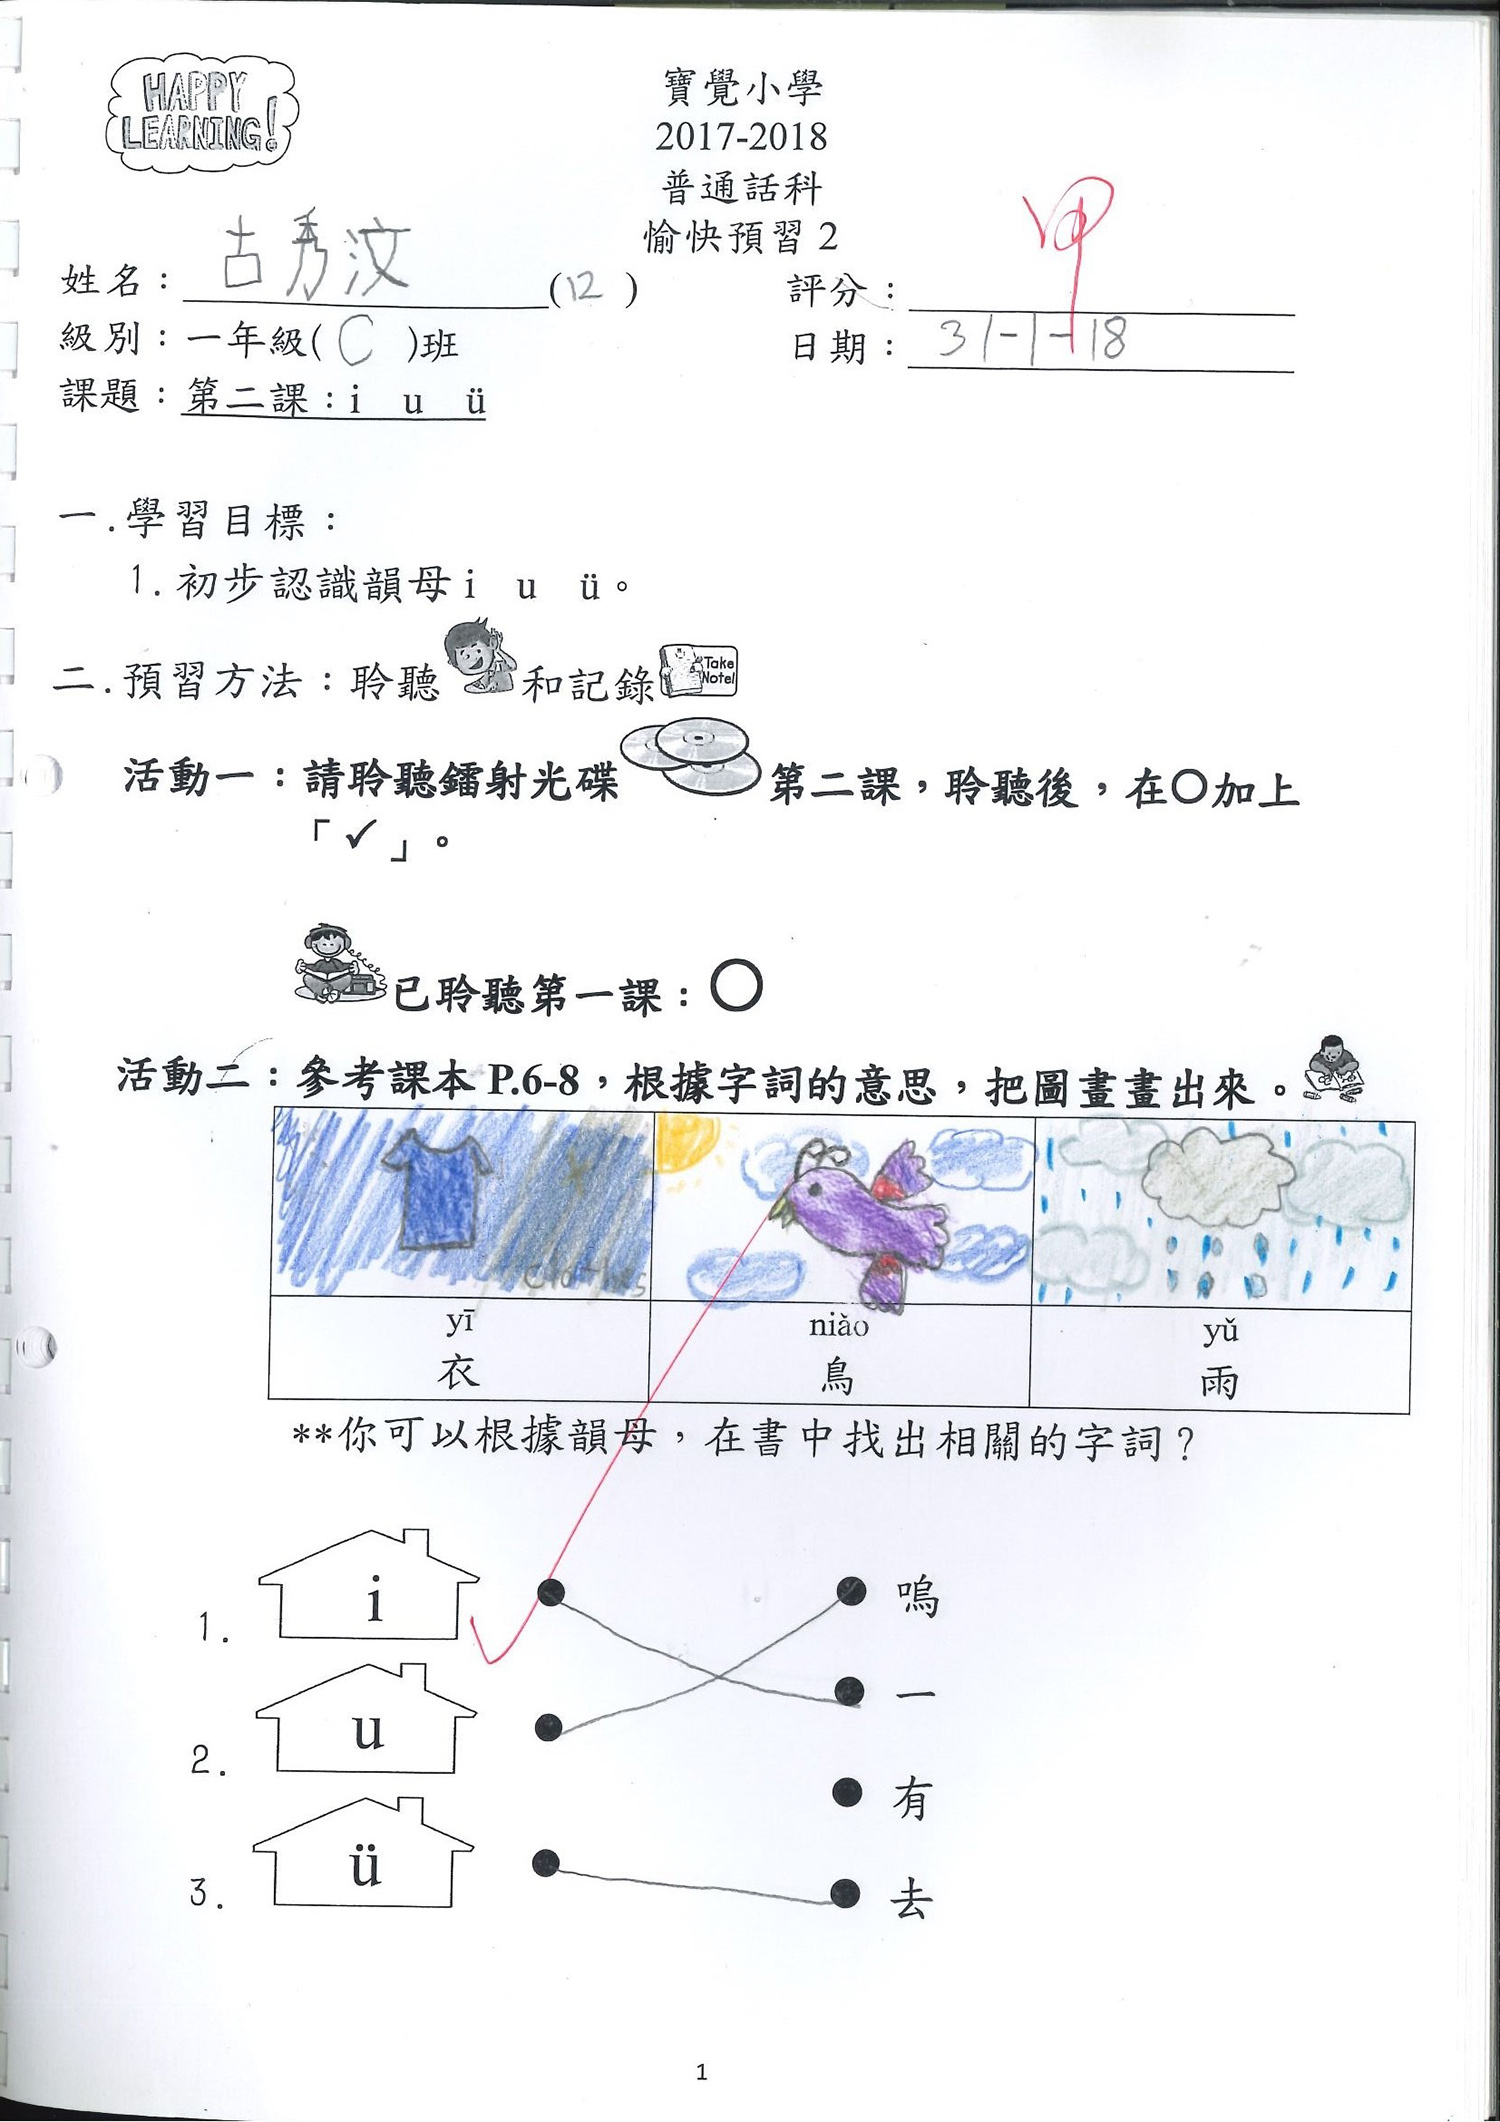 HAPPY
LEARNING!
寶覺小學
2017-2018
普通話科
愉快預習 2
姓名：古秀汶(12)
評分：甲
級別：一年級(C)班
日期：31-1-18
課題：第二課：i u ü
一.學習目標：
1.初步認識韻母 i u ü。
二.預習方法：聆聽和記錄
Take
Note!
活動一：請聆聽鐳射光碟第二課，聆聽後，在○加上
「✓」。
已聆聽第一課：○
活動二：參考課本 P.6-8，根據字詞的意思，把圖畫畫出來。
yī niǎo yǔ
衣 鳥 雨
**你可以根據韻母，在書中找出相關的字詞？
1. i 嗚
一
2. u
有
3. ü 去
1